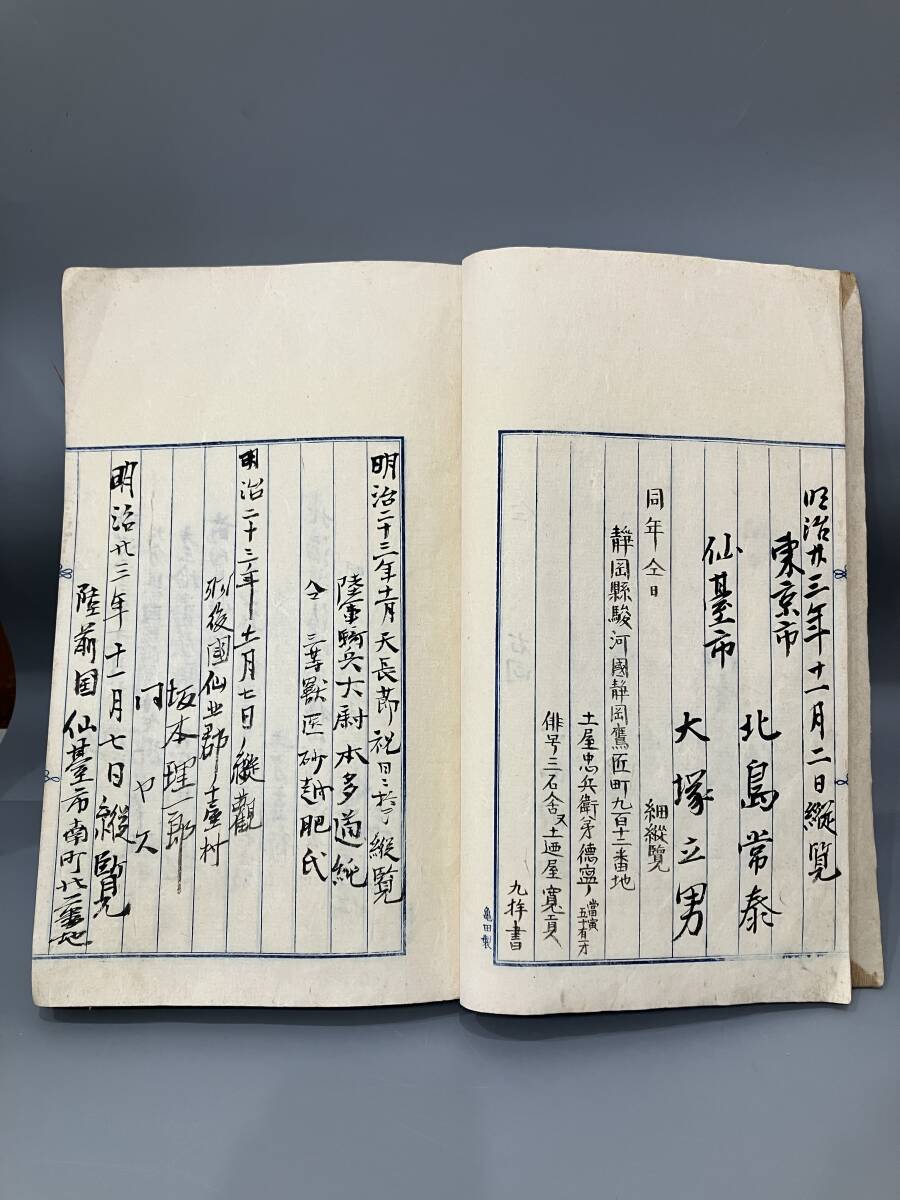 明治廿三年十一月二日縦覧
東京市
北島常泰
仙臺市
大塚立男
同年仝日
細縦覧
静岡縣駿河國静岡鷹匠町九百十二番地
土屋忠兵衛弟徳寧
當寅五十有一才
俳号三石舎又土硒屋寛貢
九拝書
亀田製
明治二十三年十一月天長節祝日ニ拾了縦覧
陸軍騎兵大尉本多道純
仝 三等獣医砂越肥氏
明治二十三年十一月七日縦觀
羽後國仙北郡千臺村
坂本理一郎
同 ヤス
明治廿三年十一月七日縦覧
陸前国仙臺市南町廿二番地